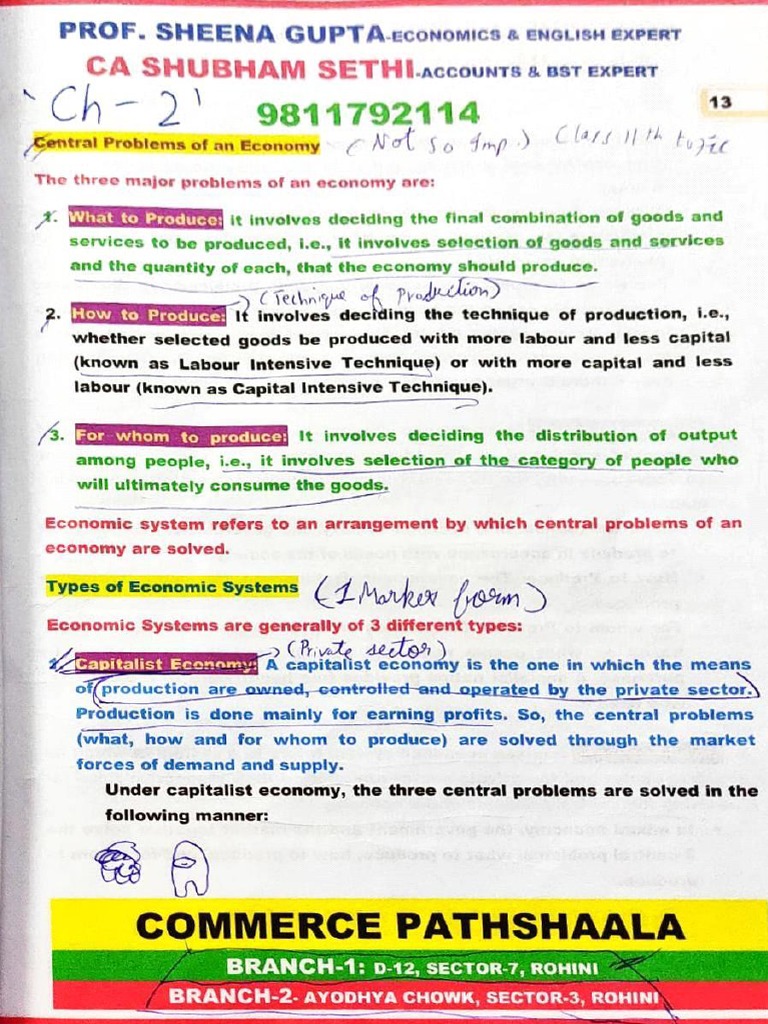 PROF. SHEENA GUPTA-ECONOMICS & ENGLISH EXPERT
CA SHUBHAM SETHI-ACCOUNTS & BST EXPERT
'Ch - 2'
9811792114
13
Central Problems of an Economy (Not so Imp.) Class 11th topic
The three major problems of an economy are:
1. What to Produce: it involves deciding the final combination of goods and
services to be produced, i.e., it involves selection of goods and services
and the quantity of each, that the economy should produce.
(Technique of Production)
2. How to Produce: It involves deciding the technique of production, i.e.,
whether selected goods be produced with more labour and less capital
(known as Labour Intensive Technique) or with more capital and less
labour (known as Capital Intensive Technique).
3. For whom to produce: It involves deciding the distribution of output
among people, i.e., it involves selection of the category of people who
will ultimately consume the goods.
Economic system refers to an arrangement by which central problems of an
economy are solved.
Types of Economic Systems (1 Marker form)
Economic Systems are generally of 3 different types:
(Private sector)
1. Capitalist Economy: A capitalist economy is the one in which the means
of production are owned, controlled and operated by the private sector.
Production is done mainly for earning profits. So, the central problems
(what, how and for whom to produce) are solved through the market
forces of demand and supply.
Under capitalist economy, the three central problems are solved in the
following manner:
COMMERCE PATHSHAALA
BRANCH-1: D-12, SECTOR-7, ROHINI
BRANCH-2- AYODHYA CHOWK, SECTOR-3, ROHINI